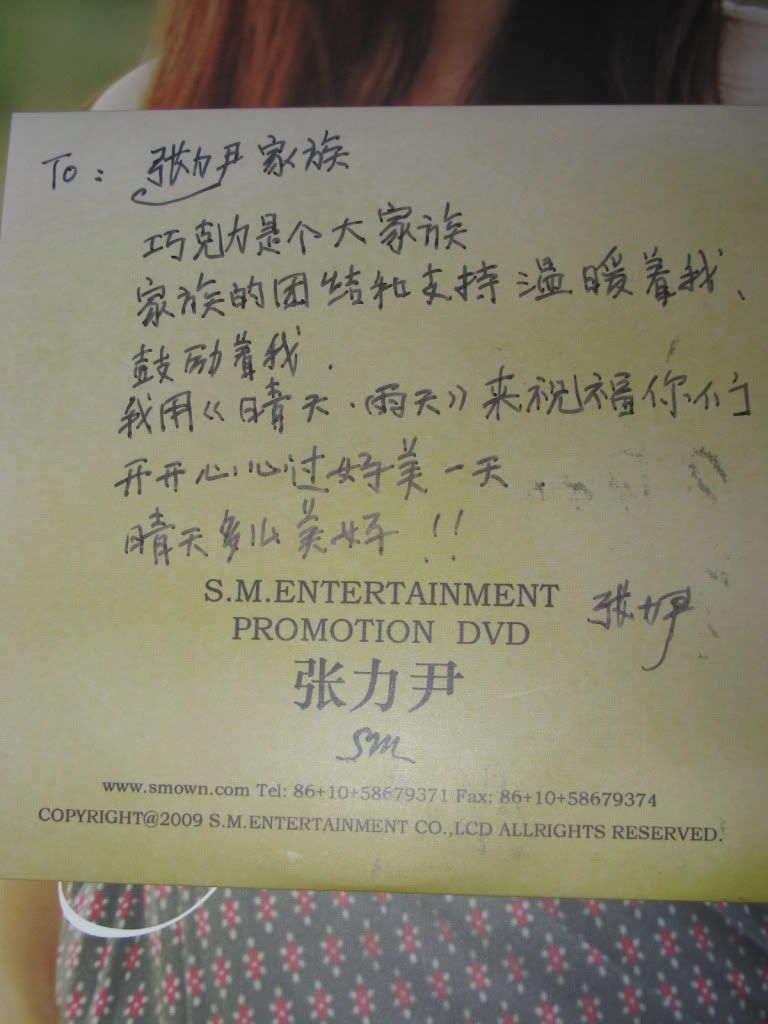 To: 张力尹家族
巧克力是个大家族
家族的团结和支持温暖着我、
鼓励着我.
我用《晴天·雨天》来祝福你们
开开心心过好美一天.
晴天多么美好!!
张力尹
S.M.ENTERTAINMENT
PROMOTION DVD
张力尹
SM
www.smown.com Tel: 86+10+58679371 Fax: 86+10+58679374
COPYRIGHT@2009 S.M.ENTERTAINMENT CO.,LCD ALLRIGHTS RESERVED.